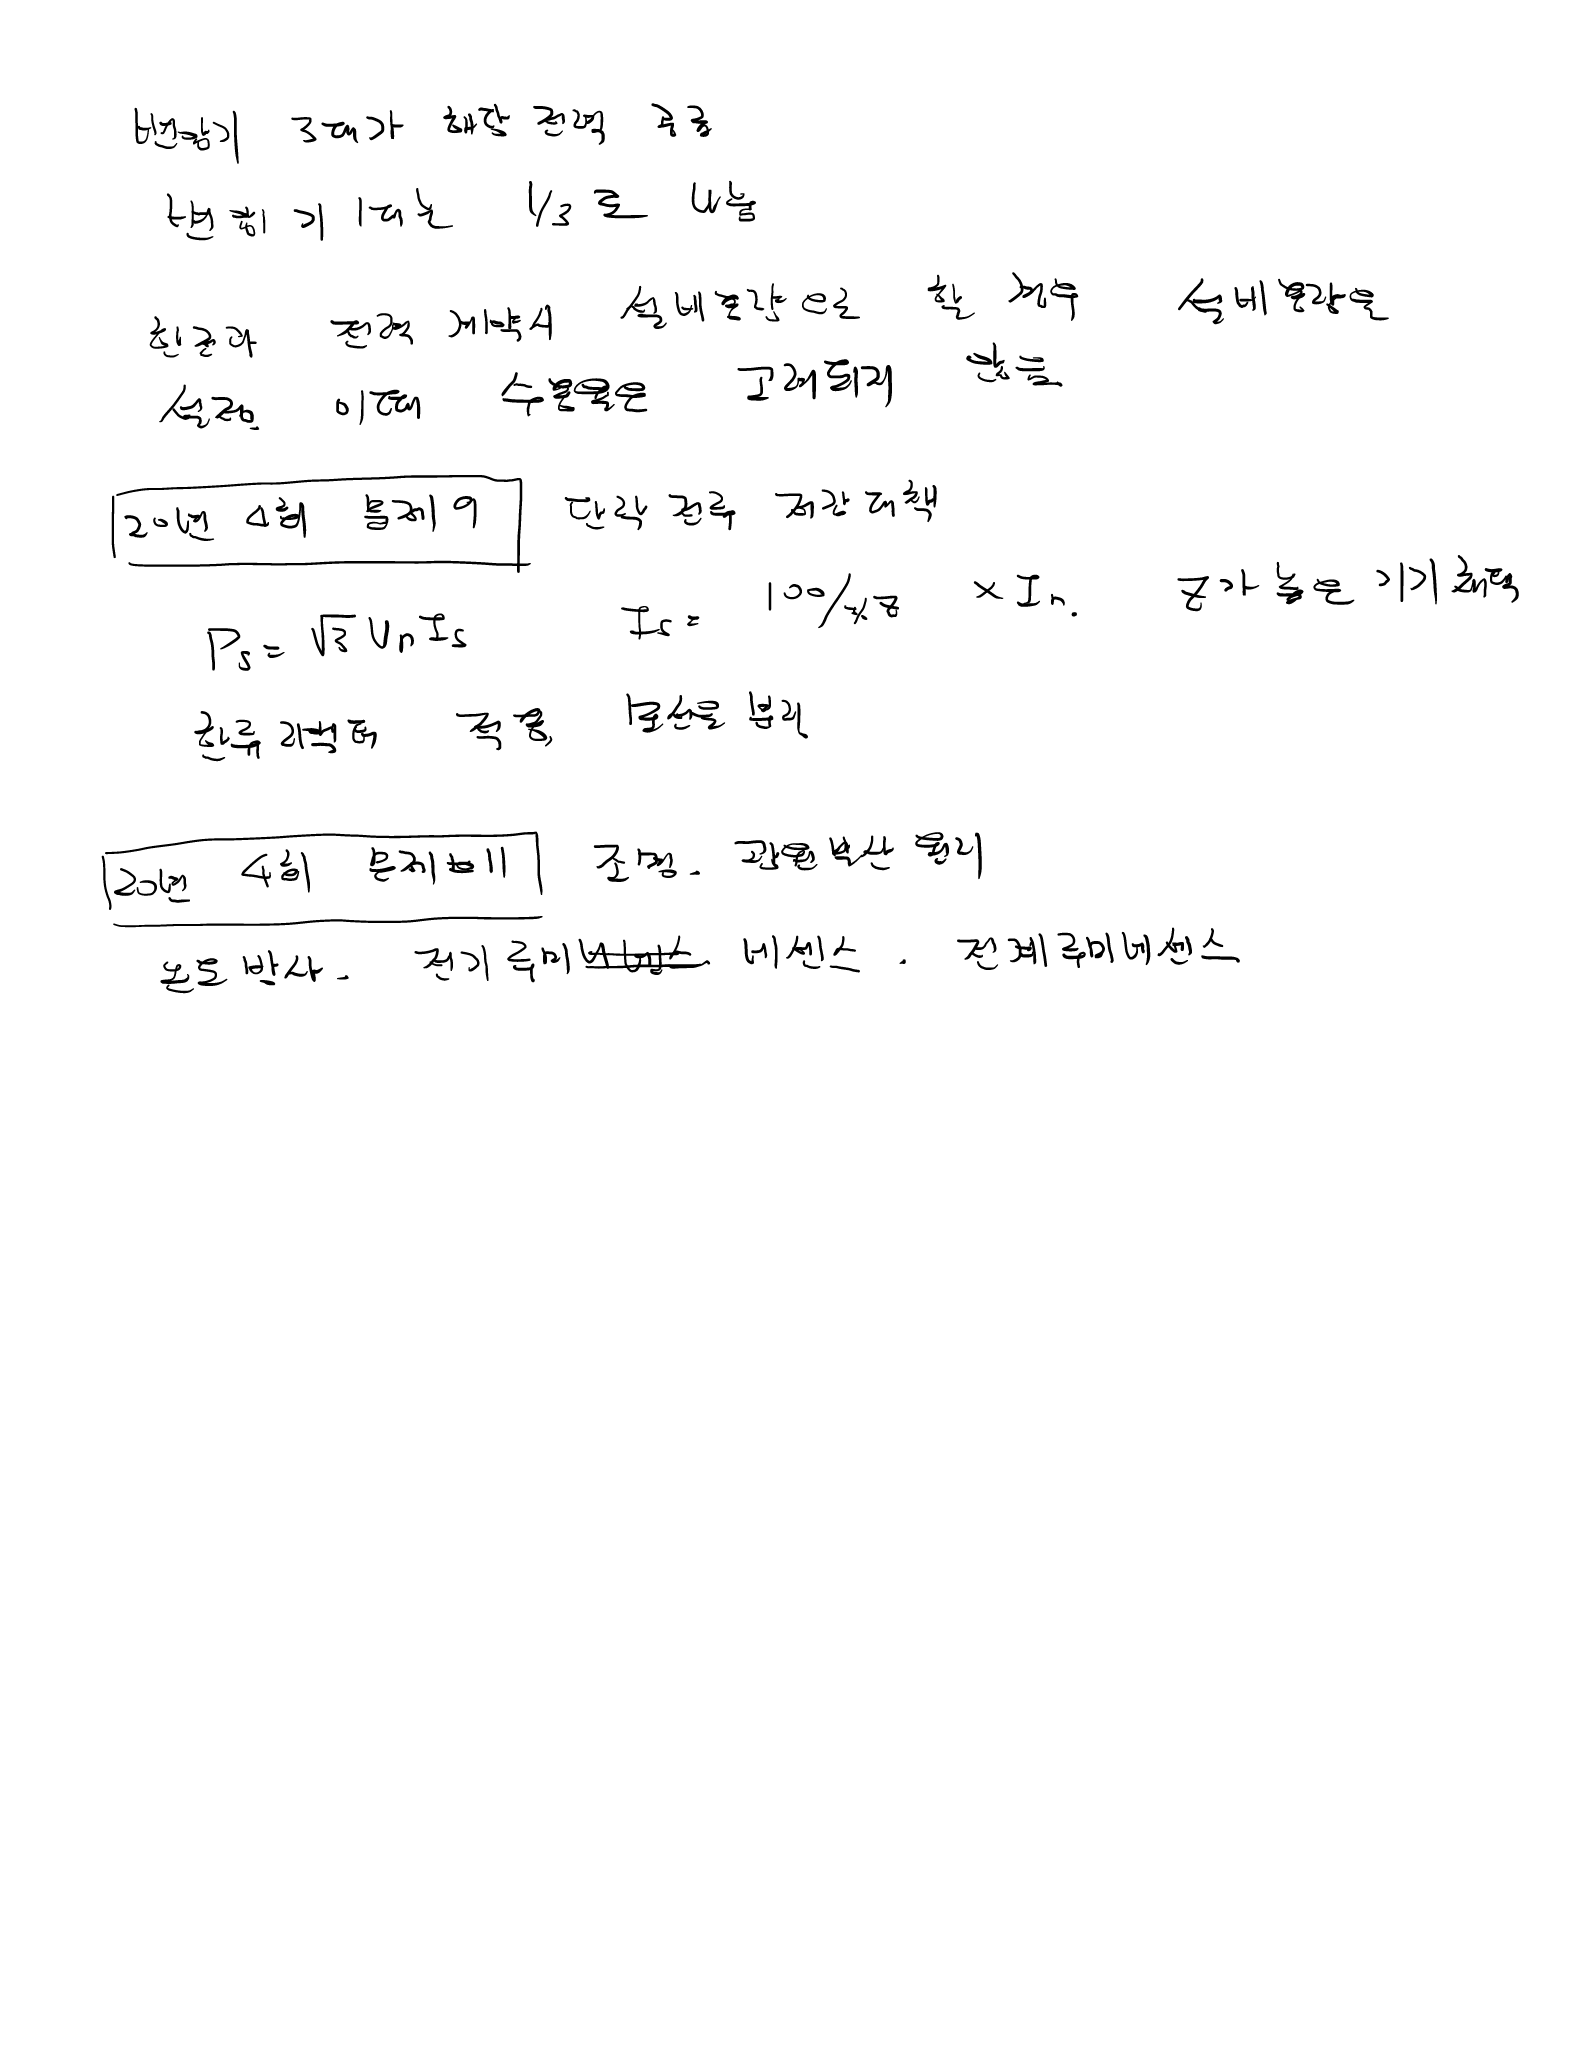 변압기 3대가 해당 전력 공급
변압기 1대는 1/3로 나눔
한전과 전력 계약시 설비용량으로 할 경우 설비용량을
설정. 이때 수용률은 고려되지 않음
20년 4회 문제 9 단락 전류 저감 대책
Ps = √3 Vn Is Is = 100/%Z × In. Z가 높은 기기 채택
한류 리액터 적용, 모선을 분리
20년 4회 문제 11 조명. 광원 발산 원리
온도 방사. 전기 루미네센스. 전계 루미네센스